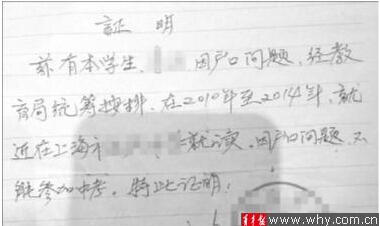 证明
兹有本学生 因户口问题、经教
育局统筹按排、在2010年至2014年、就
近在上海市 就读、因户口问题、不
能参加中考。特此证明!
青年报 www.why.com.cn